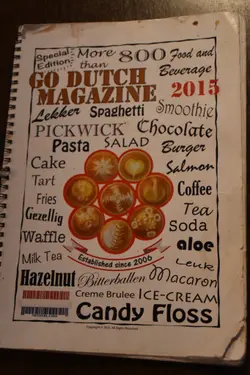 Special Edition: More than 800 Food and Beverage
GO DUTCH
MAGAZINE 2015
Lekker Spaghetti Smoothie
PICKWICK Chocolate
Pasta SALAD Burger
Cake Salmon
Tart Coffee
Fries Tea
Gezellig Soda
Waffle aloe
Milk Tea Leuk
Established since 2006
Hazelnut Bitterballen Macaron
Creme Brulee ICE-CREAM
Candy Floss